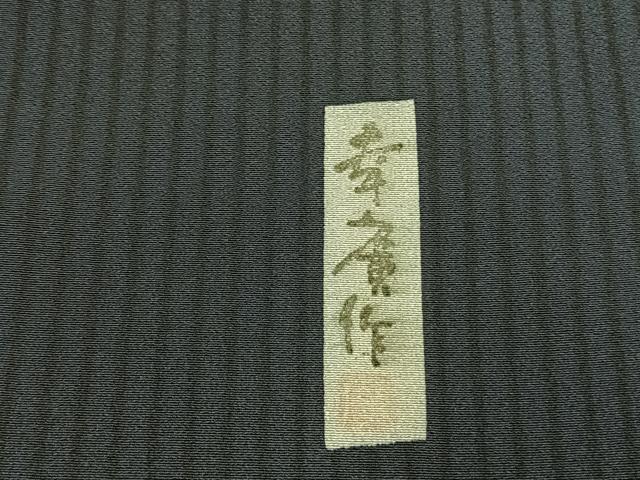 幸廣作